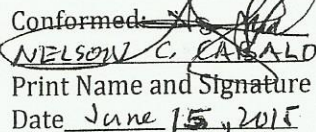 Conformed:
NELSON C. CASALO
Print Name and Signature
Date June 15, 2015